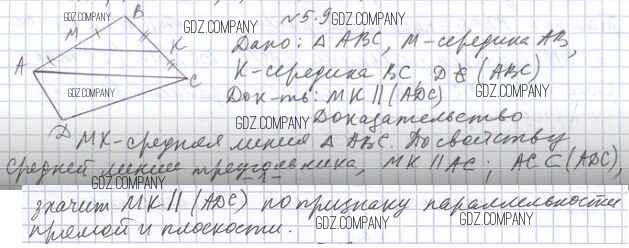 B
GDZ.COMPANY
№5.9 GDZ.COMPANY
M
K
Дано: Δ ABC, M-середина AB,
A
GDZ.COMPANY
C
K-середина BC, D ∉ (ABC)
GDZ.COMPANY
Док-ть: MK || (ADC)
GDZ.COMPANY
Доказательство
D
MK-средняя линия Δ ABC. По свойству
средней линии треугольника, MK || AC; AC ⊂ (ADC),
GDZ.COMPANY
GDZ.COMPANY
значит MK || (ADC) по признаку параллельности
прямой и плоскости.
GDZ.COMPANY
GDZ.COMPANY